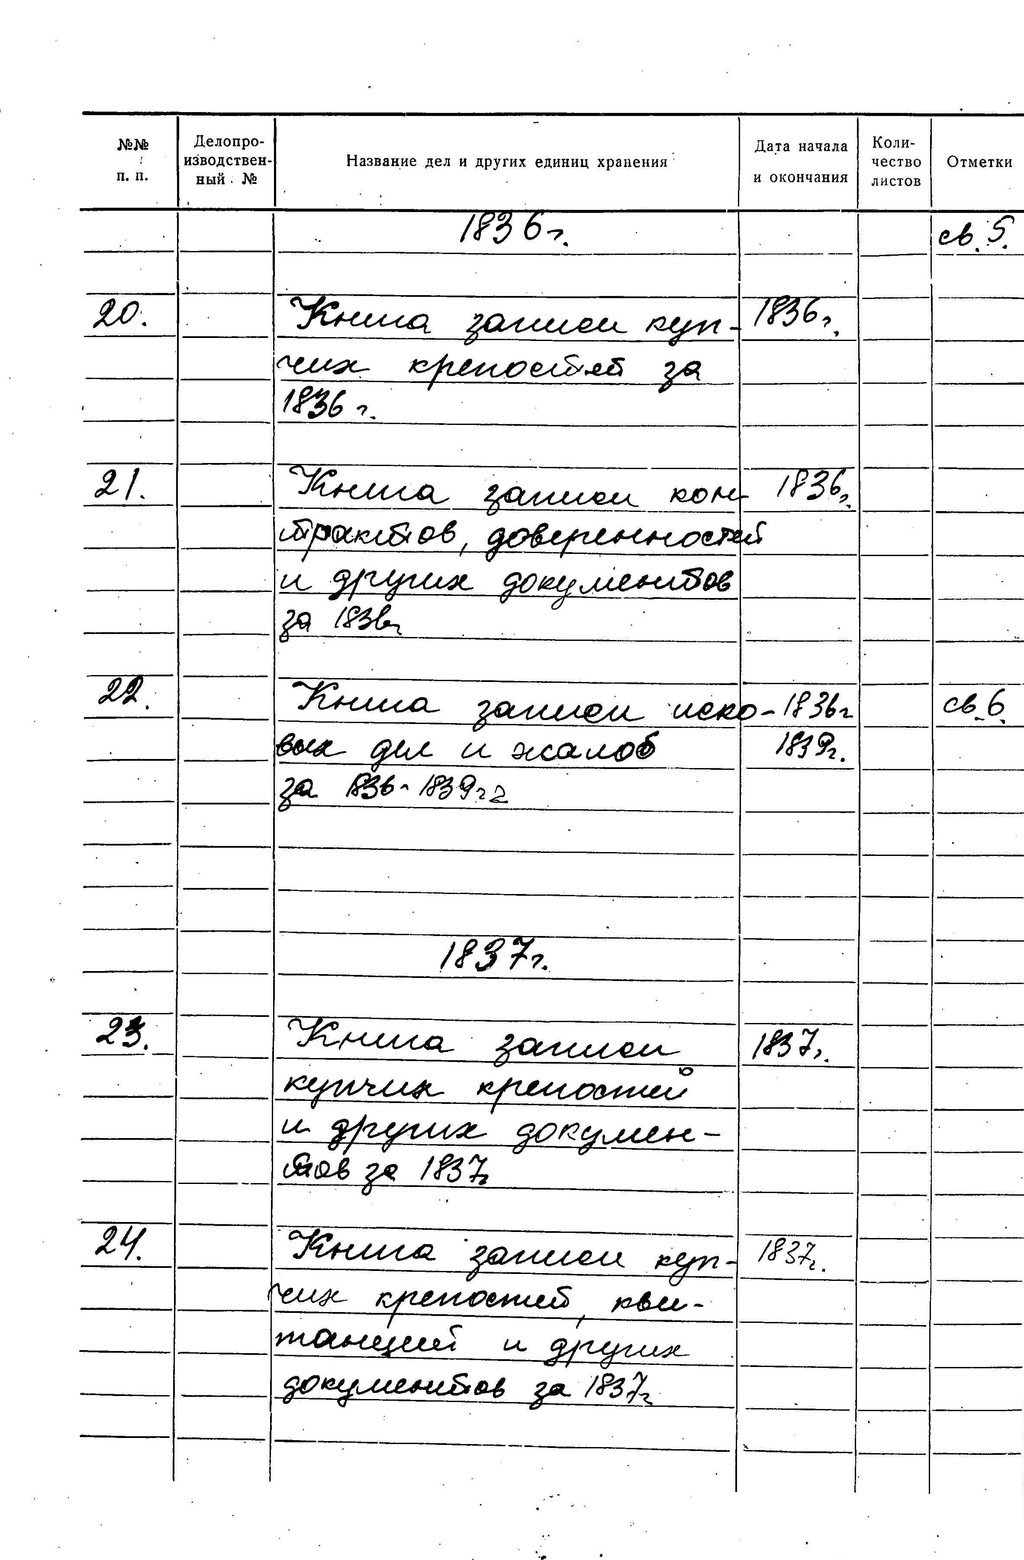 №№ п. п.
Делопроизводственный №
Название дел и других единиц хранения
Дата начала и окончания
Количество листов
Отметки
1836г. св. 5.
20. Книга записи куп- 1836г.
чих крепостей за
1836 г.
21. Книга записи кон- 1836г.
трактов, доверенностей
и других документов
за 1836г
22. Книга записи иско- 1836г св. 6.
вых дел и жалоб 1839г.
за 1836-1839гг
1837г.
23. Книга записи 1837г.
купчих крепостей
и других докумен-
тов за 1837г
24. Книга записи куп- 1837г.
чих крепостей, кви-
танций и других
документов за 1837г